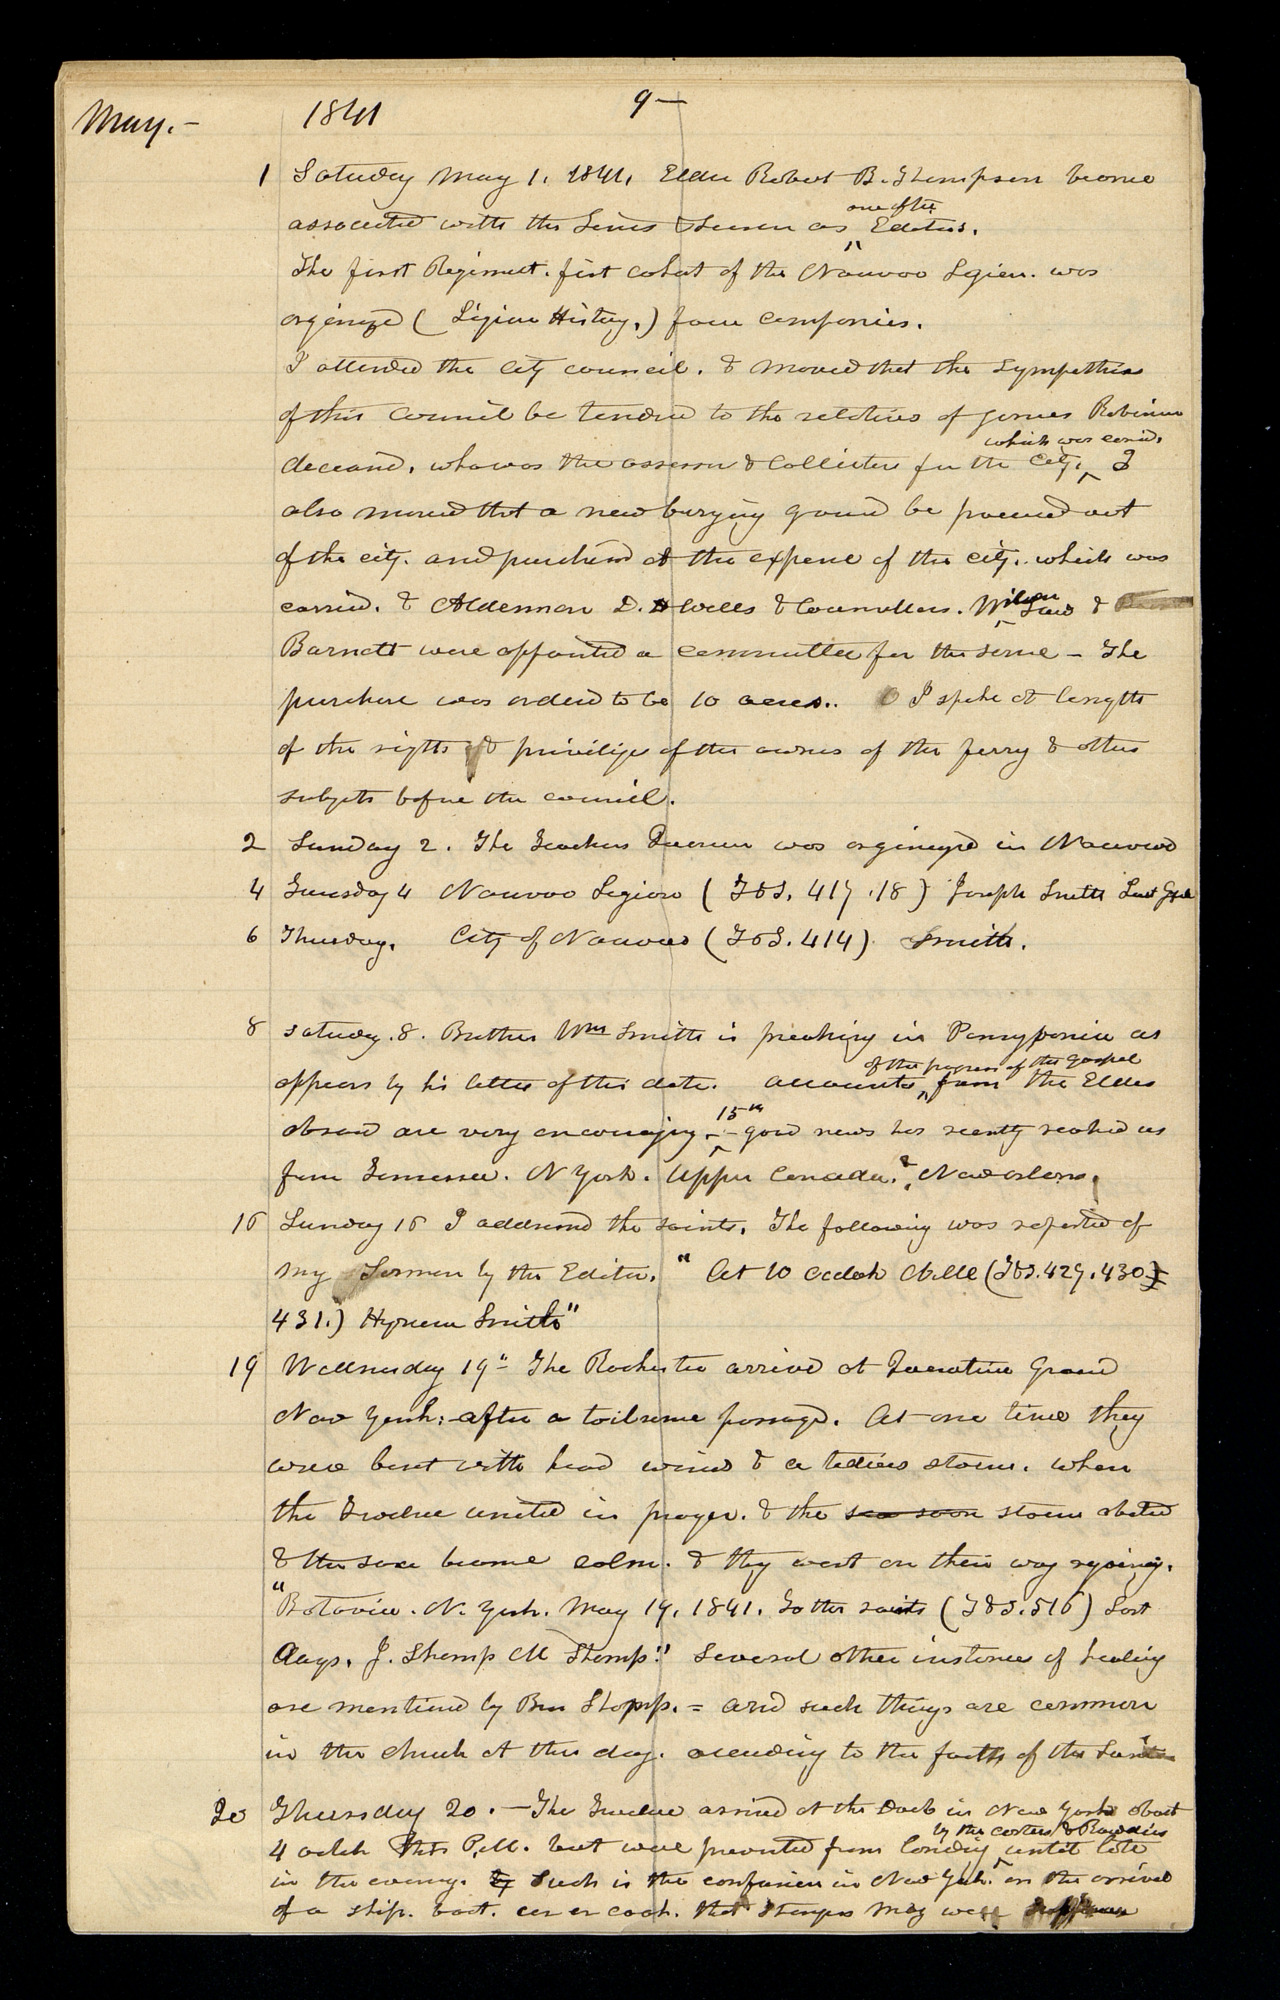 May.— 1841 9—
1 Saturday May 1. 1841. Elder Robert B. Thompson become
one of the
associated with the Times & Season as Editors.
The first Regiment. first cohort of the Nauvoo Legion. was
organized ( Legion History.) four companies.
I attended the City council. & moved that the sympathies
of this council be tendered to the relatives of James Robinson
which was carried.
deceased. who was the assessor & Collector for the City. I
also moved that a new burying ground be procured out
of the city. and purchased at the expense of the city. which was
carried. & Alderman D. H Wells & Councillors. Wilson Law &
Barnett were appointed a committee for the same — The
purchase was ordered to be 10 acres.. I spoke at length
of the rights & privileges of the owners of the ferry & other
subjects before the council.
2 Sunday 2. The Teachers Quorum was organized in Nauvoo
4 Tuesday 4 Nauvoo Legion ( T&S. 417.18 ) Joseph Smith Leut Genl
6 Thursday. City of Nauvoo (T&S. 414) Smith.
8 Saturday. 8. Brother Wm Smith is preaching in Pennsylvania as
of the progress of the gospel
appears by his letter of this date. accounts from the Elders
15th
abroad are very encouraging. — good news has recently reached us
from Tennessee. N York. Upper Canada. & New orleans.
16 Sunday 16 I addressed the saints. The following was reported of
my Sermon by the Editor. "At 10 oclock A.M &c (T&S. 429. 430.
431.) Hyrum Smith"
19 Wednesday 19th The Rochester arrived at Quarantine Ground
New York: after a toilsome passage. At one time they
were beset with head winds & a tedious storm. when
the Twelve united in prayer. & the sea soon storm abated
& the sea become calm. & they went on their way rejoicing.
"Batavia. N. York. May 19. 1841. To the saints (T&S. 516) last
days. J. Shamp M Shamp." Several other instances of healing
are mentioned by Bro Shamp. = and such things are common
in the church at this day. according to the faith of the Saints
20 Thursday 20. — The Twelve arrived at the Dock in New York about
by the carters & Rowdies
4 oclock P.M. but were prevented from landing until late
in the evening. Such is the confusion in New York. on the arrival
of a ship. boat. car or coach. that strangers may well suppose